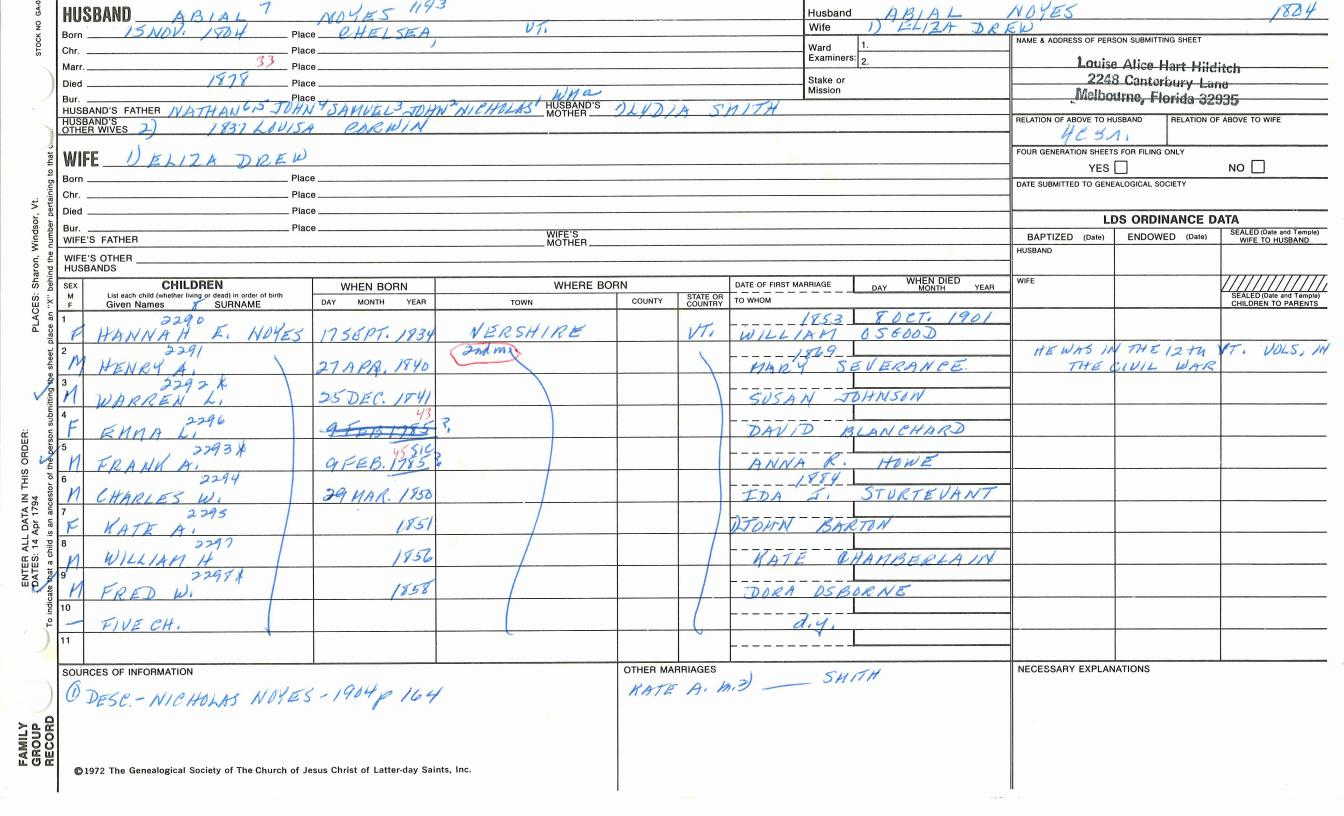 STOCK NO GA-0
HUSBAND ABIAL 7 NOYES 1193
Husband ABIAL NOYES 1804
Wife 1) ELIZA DREW
Born 15 NOV. 1804 Place CHELSEA, VT.
Chr. Place
Marr. 33 Place
Died 1878 Place
Bur. Place
Ward Examiners: 1.
2.
Stake or Mission
NAME & ADDRESS OF PERSON SUBMITTING SHEET
Louise Alice Hart Hilditch
2248 Canterbury Lane
Melbourne, Florida 32935
HUSBAND'S FATHER NATHAN 6, 5 JOHN 4 SAMUEL 3 JOHN 2 NICHOLAS 1
HUSBAND'S MOTHER LYDIA SMITH
HUSBAND'S OTHER WIVES 2) 1837 LOUISA DARWIN
RELATION OF ABOVE TO HUSBAND
RELATION OF ABOVE TO WIFE
FOUR GENERATION SHEETS FOR FILING ONLY
YES NO
DATE SUBMITTED TO GENEALOGICAL SOCIETY
WIFE 1) ELIZA DREW
Born Place
Chr. Place
Died Place
Bur. Place
WIFE'S FATHER
WIFE'S MOTHER
WIFE'S OTHER HUSBANDS
LDS ORDINANCE DATA
BAPTIZED (Date) ENDOWED (Date) SEALED (Date and Temple) WIFE TO HUSBAND
HUSBAND
WIFE
SEALED (Date and Temple) CHILDREN TO PARENTS
SEX M F
CHILDREN
List each child (whether living or dead) in order of birth
Given Names SURNAME
WHEN BORN
DAY MONTH YEAR
WHERE BORN
TOWN COUNTY STATE OR COUNTRY
DATE OF FIRST MARRIAGE
TO WHOM
WHEN DIED
DAY MONTH YEAR
1 2290 1853 8 OCT. 1901
F HANNAH E. NOYES 17 SEPT. 1834 VERSHIRE VT. WILLIAM OSGOOD
2 2291 2nd m. 1869
M HENRY A. 27 APR. 1840 MARY SEVERANCE
HE WAS IN THE 12th VT. VOLS, IN
THE CIVIL WAR
3 2292 X
M WARREN L. 25 DEC. 1841 SUSAN JOHNSON
4 2296 43
F EMMA L. 9 FEB 1785 ? DAVID BLANCHARD
5 2293 X 45 SIC
M FRANK A. 9 FEB. 1785 ? ANNA R. HOWE
6 2294 1884
M CHARLES W. 29 MAR. 1850 IDA J. STURTEVANT
7 2295
F KATE A. 1851 1) JOHN BARTON
8 2297
M WILLIAM H 1856 KATE CHAMBERLAIN
9 2298 X
M FRED W. 1858 DORA OSBORNE
10
– FIVE CH. d.y.
11
SOURCES OF INFORMATION
① DESC.- NICHOLAS NOYES - 1904 p 164
OTHER MARRIAGES
KATE A. m. 2) —— SMITH
NECESSARY EXPLANATIONS
©1972 The Genealogical Society of The Church of Jesus Christ of Latter-day Saints, Inc.
FAMILY GROUP RECORD
ENTER ALL DATA IN THIS ORDER:
DATES: 14 Apr 1794
PLACES: Sharon, Windsor, Vt.
To indicate that a child is an ancestor of the person submitting the sheet, place an "X" behind the number pertaining to that